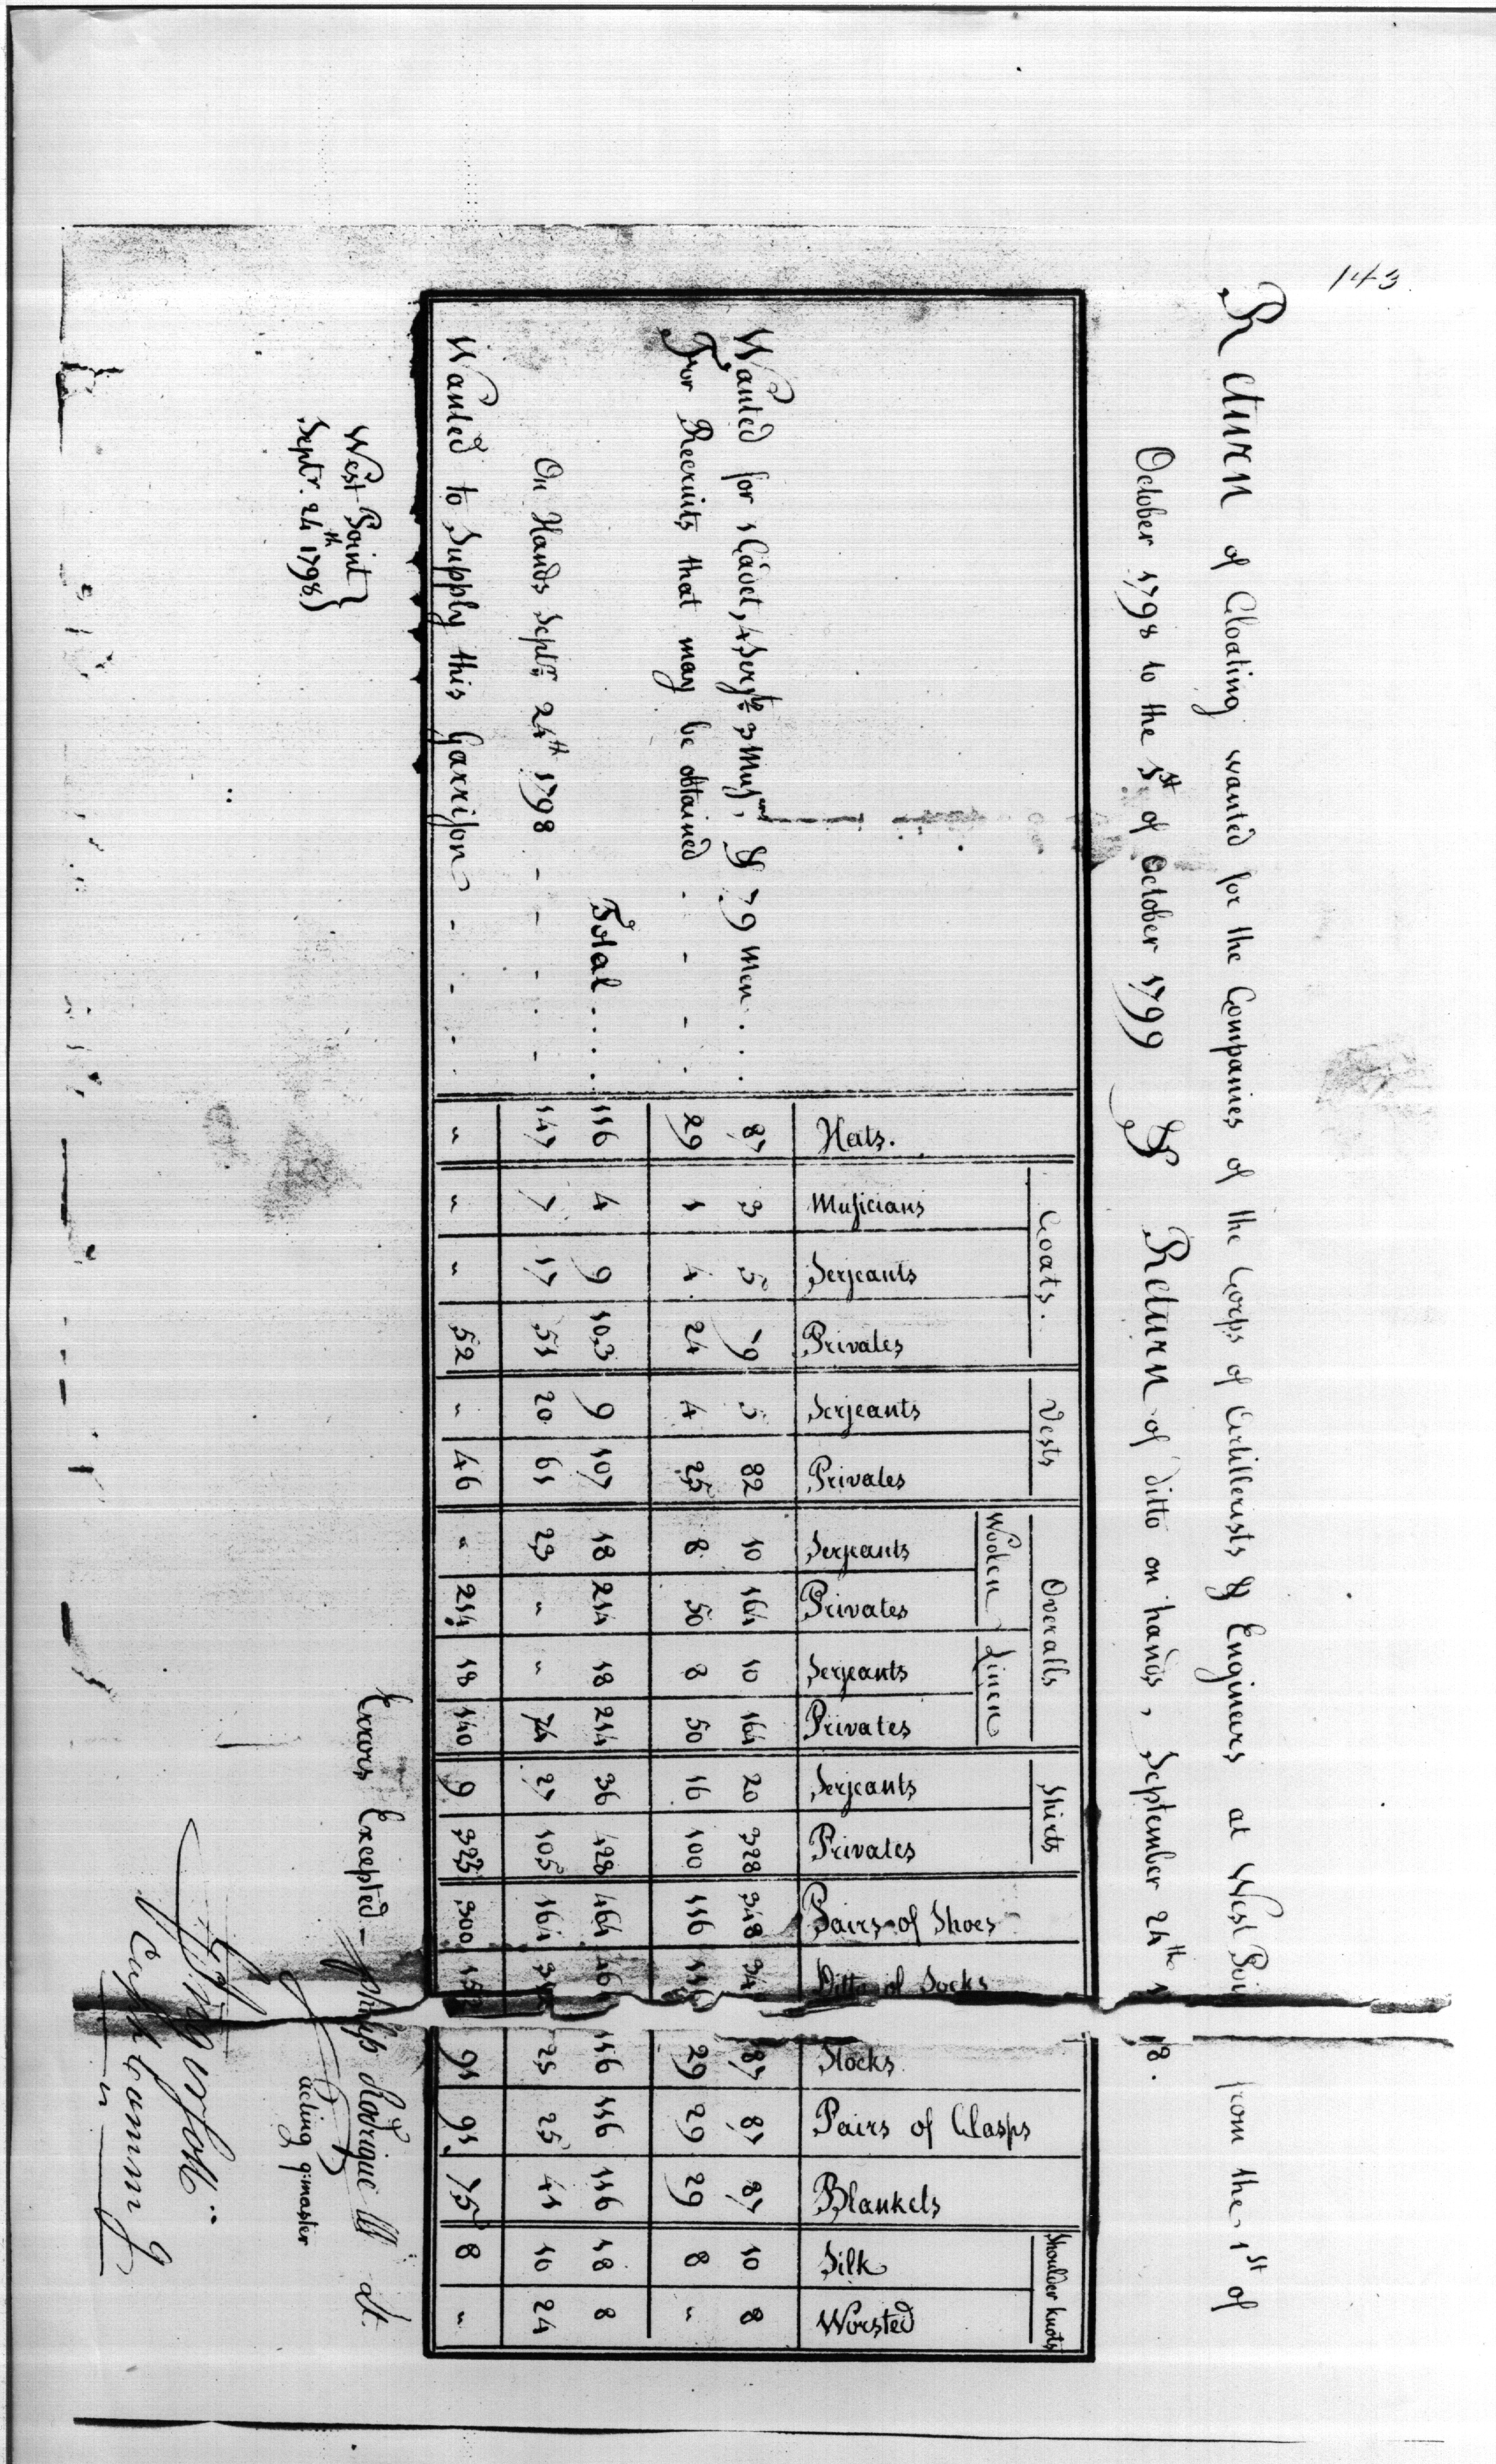 143.
Return of Cloating wanted for the Companies of the Corps of Artillerists & Engineers at West Poin from the 1st of
October 1798 to the 1st of October 1799 & Return of ditto on hands, September 24th 1 98.
Coats. Vests Overalls Shirts Shoulder knots
Woolen Linen
Hats. Musicians Serjeants Privates Serjeants Privates Serjeants Privates Serjeants Privates Serjeants Privates Pairs of Shoes Ditto of Socks Stocks Pairs of Clasps Blankets Silk Worsted
Wanted for 1 Cadet, 4 Serjts 3 Mus, & 79 Men . . 87 3 5 79 5 82 10 164 10 164 20 328 348 34 87 87 87 10 8
For Recruits that may be obtained . - - . 29 1 4 24 4 25 8 50 8 50 16 100 116 116 29 29 29 8 "
Total . . . . 116 4 9 103 9 107 18 214 18 214 36 428 464 46 116 116 116 18 8
On Hands Septr 24th 1798 - - - - 147 7 17 51 20 61 23 " " 74 27 105 164 25 25 41 10 24
Wanted to Supply this Garrison - - - " " " 52 " 46 " 214 18 140 9 323 300 15 91 91 75 8 "
West Point }
Septr. 24th 1798 }
Errors Excepted - philip Rodrigue Lt
acting q:master
Capt Comm g